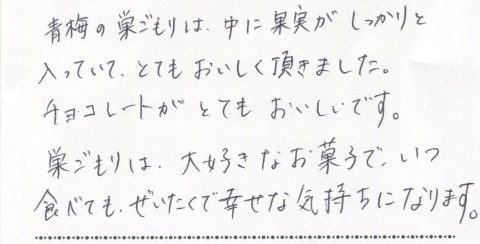 青梅の巣ごもりは、中に果実がしっかりと
入っていて、とてもおいしく頂きました。
チョコレートがとてもおいしいです。
巣ごもりは、大好きなお菓子で、いつ
食べても、ぜいたくで幸せな気持ちになります。